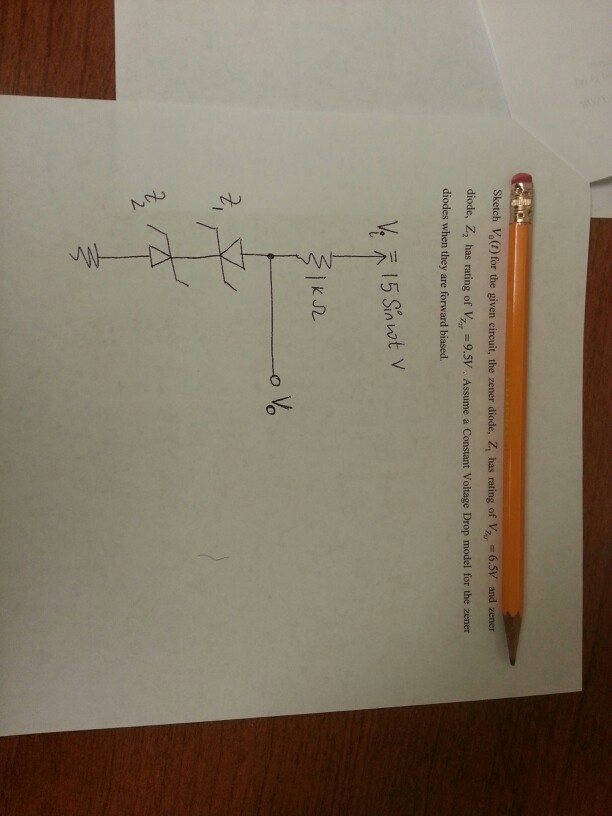 Sketch V₀(t) for the given circuit, the zener diode, Z₁ has rating of V_Zzy = 6.5V and zener
diode, Z₂ has rating of V_Zzy = 9.5V. Assume a Constant Voltage Drop model for the zener
diodes when they are forward biased.
Vi = 15 Sinωt V
1KΩ
V₀
Z₁
Z₂